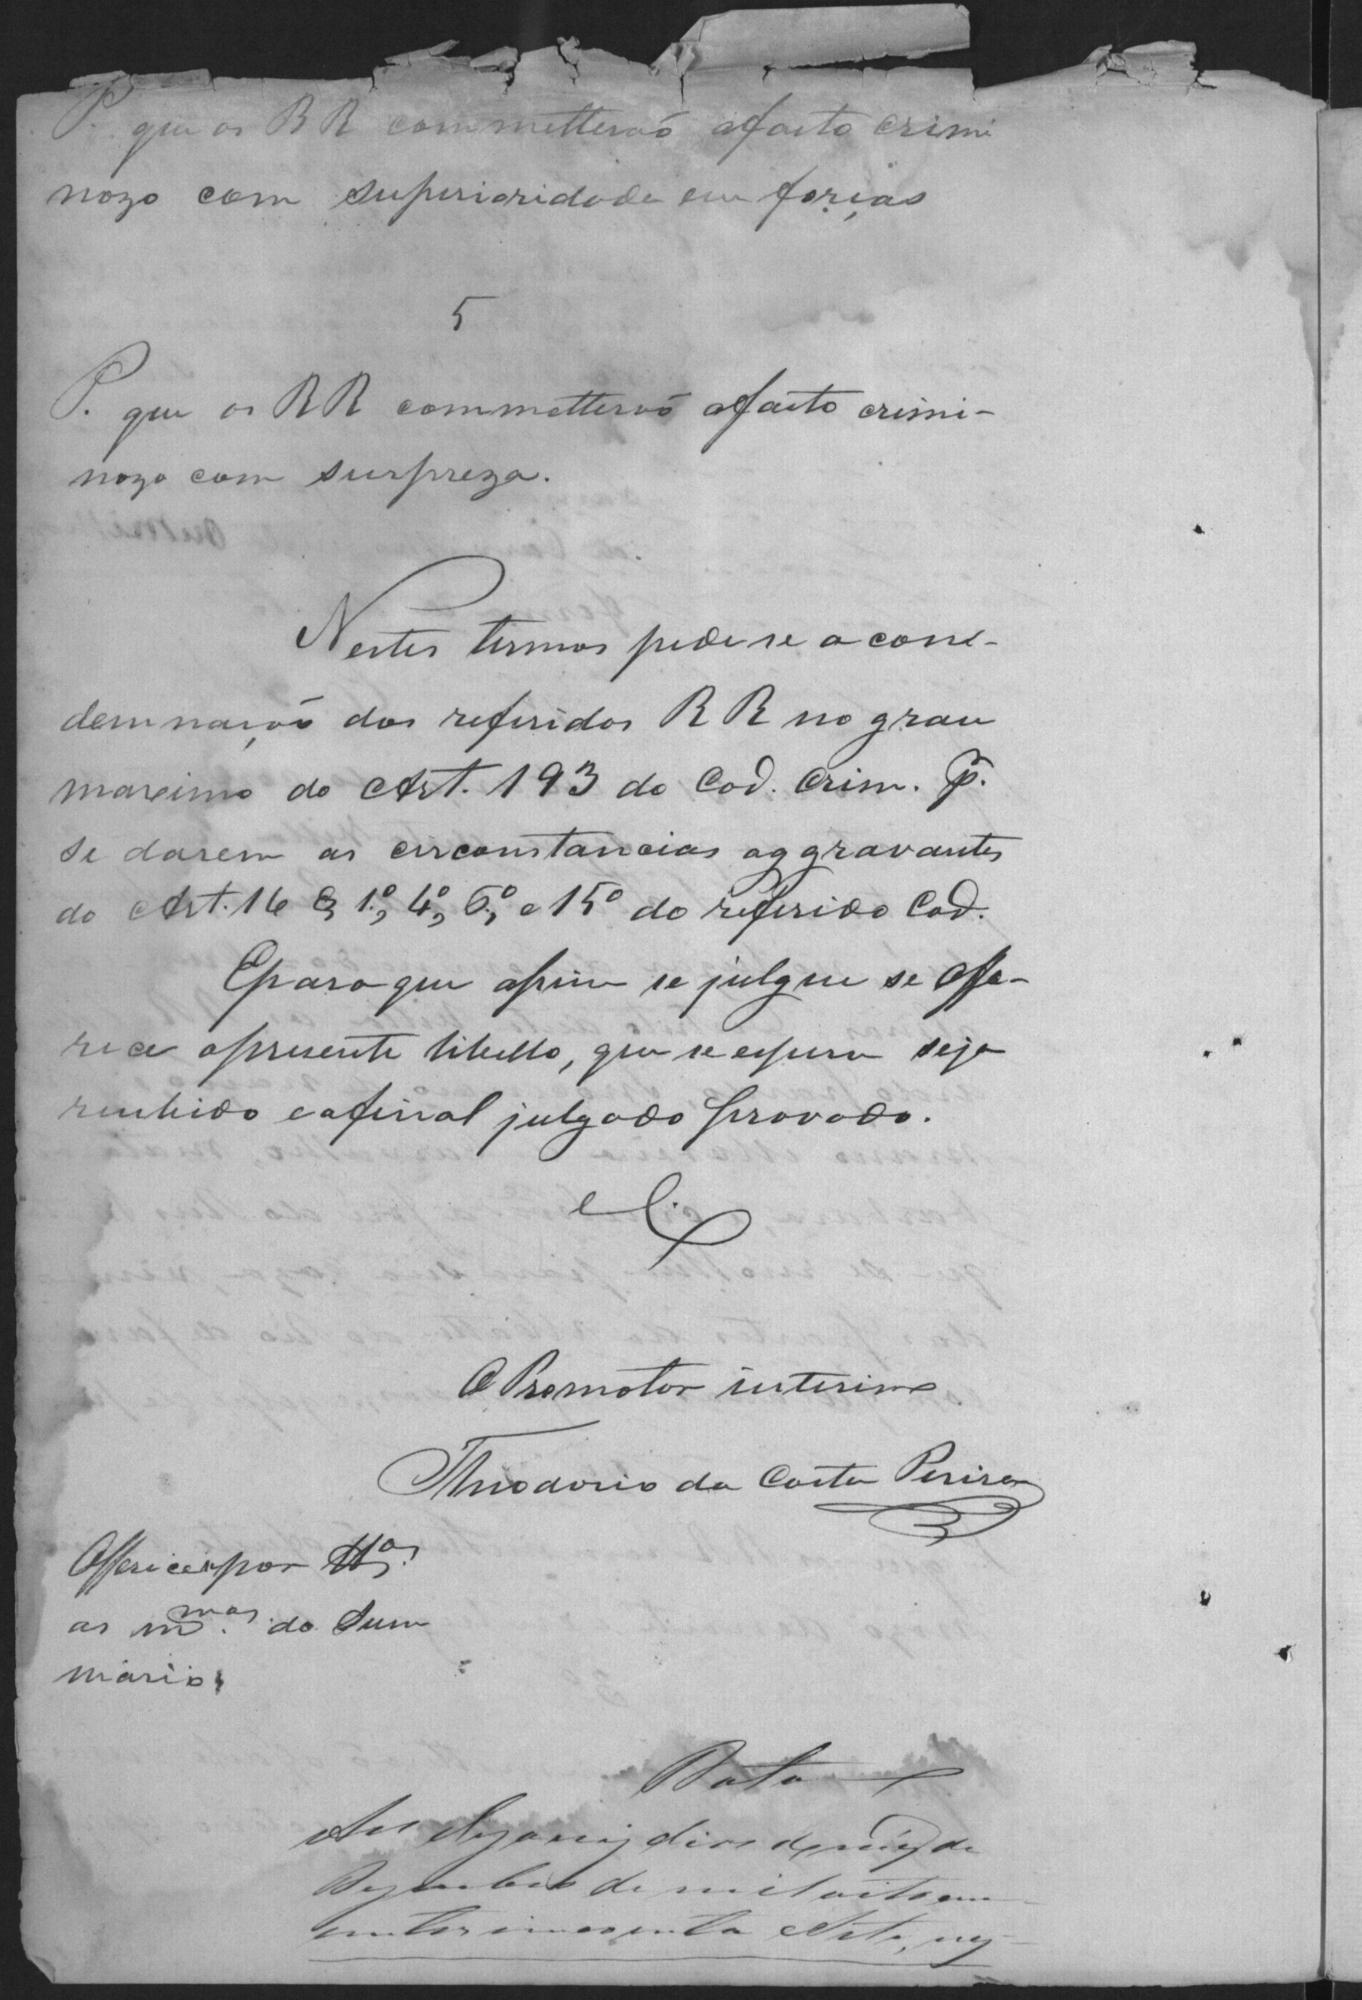 P. que os RR commetterão o facto crimi
nozo com superioridade em forças
5
P. que os RR commetterão o facto crimi-
nozo com surpreza.
Nestes termos pede se a con-
demnação dos referidos RR no grau
maximo do Art. 193 do Cod. Crim. p.
se darem as circonstancias aggravantes
do Art. 16 § 1º, 4º, 6º, e 15º do referido Cod.
E para que assim se julgue se offe-
rece o presente libello, que se espera seja
recebido e afinal julgado provado.
O Promotor interino
Theodorio da Costa Pereira
Offerece se por
as mmas. do Sum
mario
Data
Aos dias do mez de
Dezembro de mil oito cen-